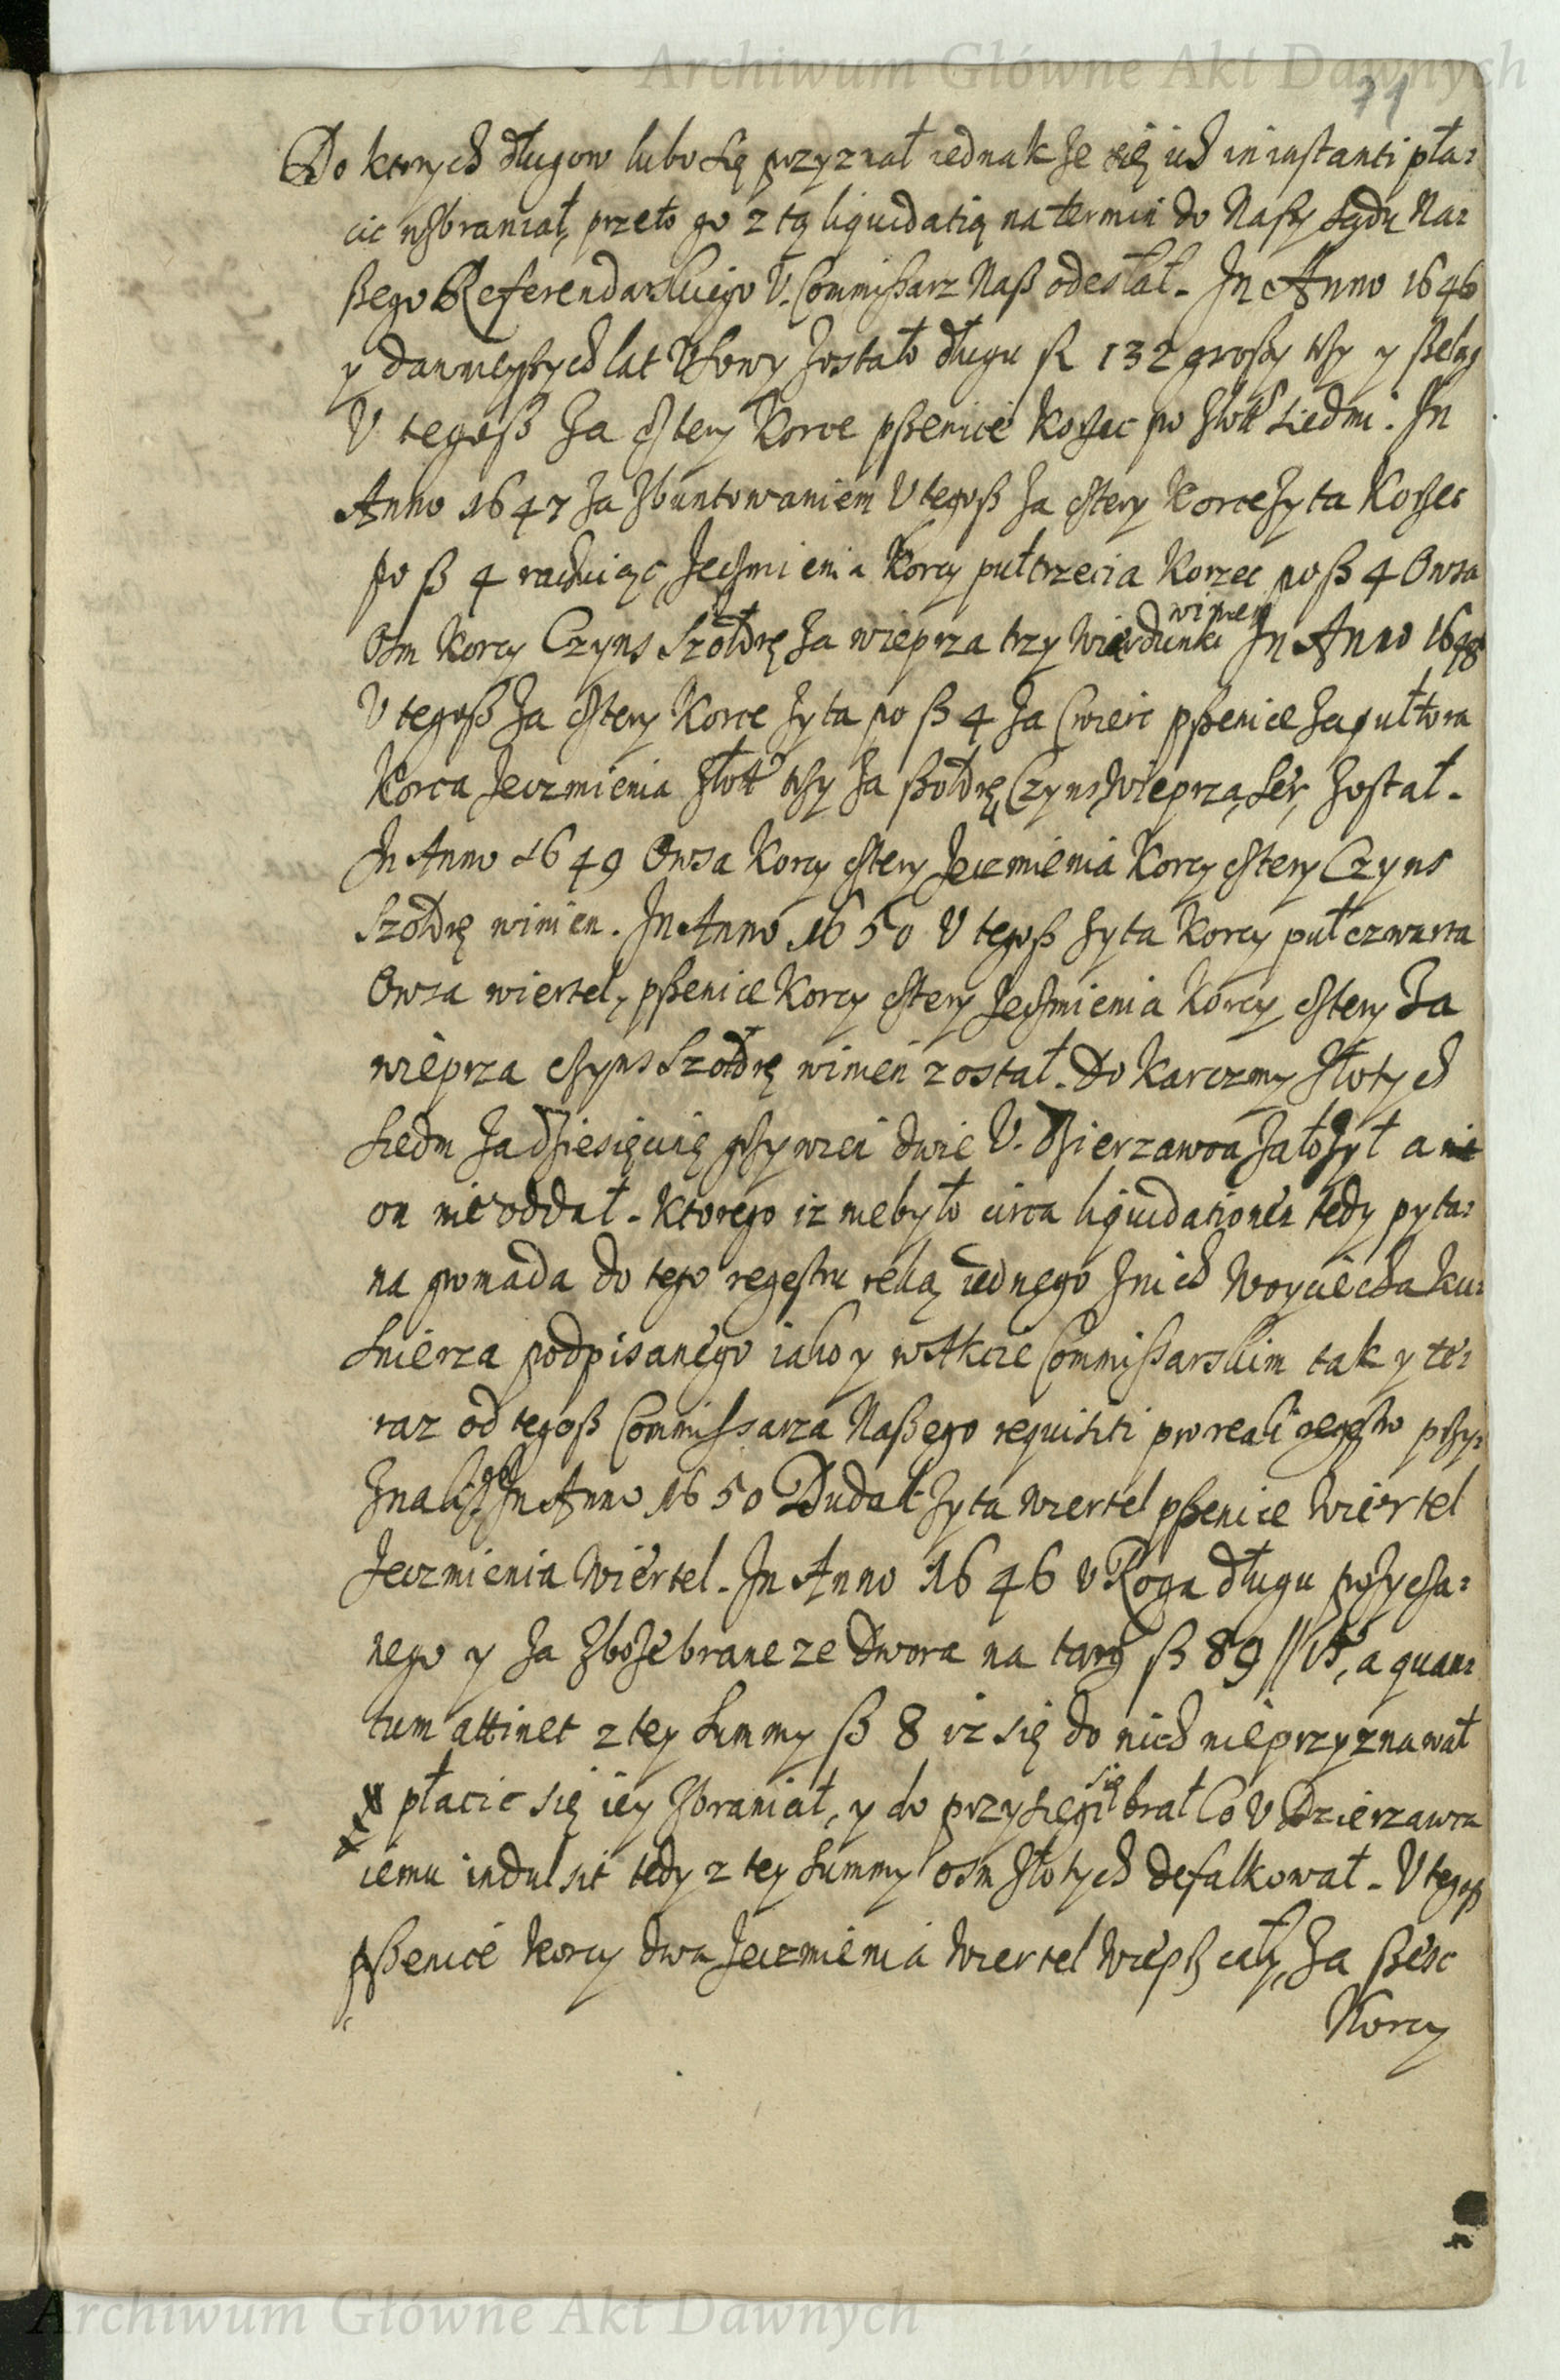 Archiwum Główne Akt Dawnych
71
Do ktorych długow lubo się przyznał iednakże się ich in instanti pła:
cic wzbraniał, przeto go z tą liquidatią na termin do Naszy Sądu Na:
ßego Referendarskiego V. Commißarz Naß odesłał. In Anno 1646
y dawnieyszych lat zostało długu fl 132 groszy trzy y ßeląg
V tegoß za cztery Korce pßenice Korzec po złott siedmi. In
Anno 1647 za zbuntowaniem V tegoß za cztery Korce żyta Korzec
po ß 4 rachuiąc, Jęczmienia Korcy pułtrzecia Korzec po ß 4 Owsa
Osm Korcy Czyns Szołdrę za wieprza trzy wierdunki winien In Anno 1648
V tegoß za cztery Korce żyta po ß 4 za cwierc pßenice za pułtora
Korca Jeczmienia złott trzy za ßołdrę, Czynsz wieprza, Ser, został.
In Anno 1649 Owsa Korcy cztery Jeczmienia Korcy cztery Czyns
Szołdrę winien. In Anno 1650 V tegoß żyta Korcy pułczwarta
Owsa wiertel, pßenice Korcy cztery Jeczmienia Korcy cztery Za
wieprza czyns Szołdrę winien został. Do Karczmy złotych
siedm za dziesięcię grzywien dwie V. Dzierzawca założył a
on nie oddał. Ktorego iz niebyło circa liquidationem tedy pyta:
na gromada do tego regestru ręką iednego z nich Woyciecha Ku:
snierza podpisanego iako y w Akcie Commißarskim tak y te:
raz od tegoß Commißarza Naßego requisiti pro reali regestro przy:
znali. In Anno 1650 Dudał żyta wiertel pßenice wiertel
Jeczmienia wiertel. In Anno 1646 v Roga długu pożycza:
nego y za zboże brane ze Dwora na targ ß 89 // a quan:
tum attinet z tey summy ß 8 iz się do nich nieprzyznawał
płacic się iey zbraniał, y do przysięgi się brał Co V Dzierzawca
iemu indulsit tedy z tey summy osm złotych defalkował. V tegoß
pßenice korcy dwa Jeczmienia wiertel wieprz cały, Za ßesc
Korcy
Archiwum Główne Akt Dawnych